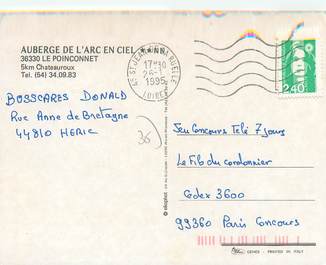 AUBERGE DE L'ARC EN CIEL
36330 LE POINCONNET
5km Chateauroux
Tel. (54) 34.09.83
45 ST JEAN RUELLE
17H30
26-1
1995
LOIRET
2,40
BOSSCARES DONALD
Rue Anne de Bretagne
44810 HERIC
36
Jeu Concours Télé 7 Jours
Le Fil du cordonnier
Cedex 3600
99360 Paris Concours
PRINTED IN ITALY